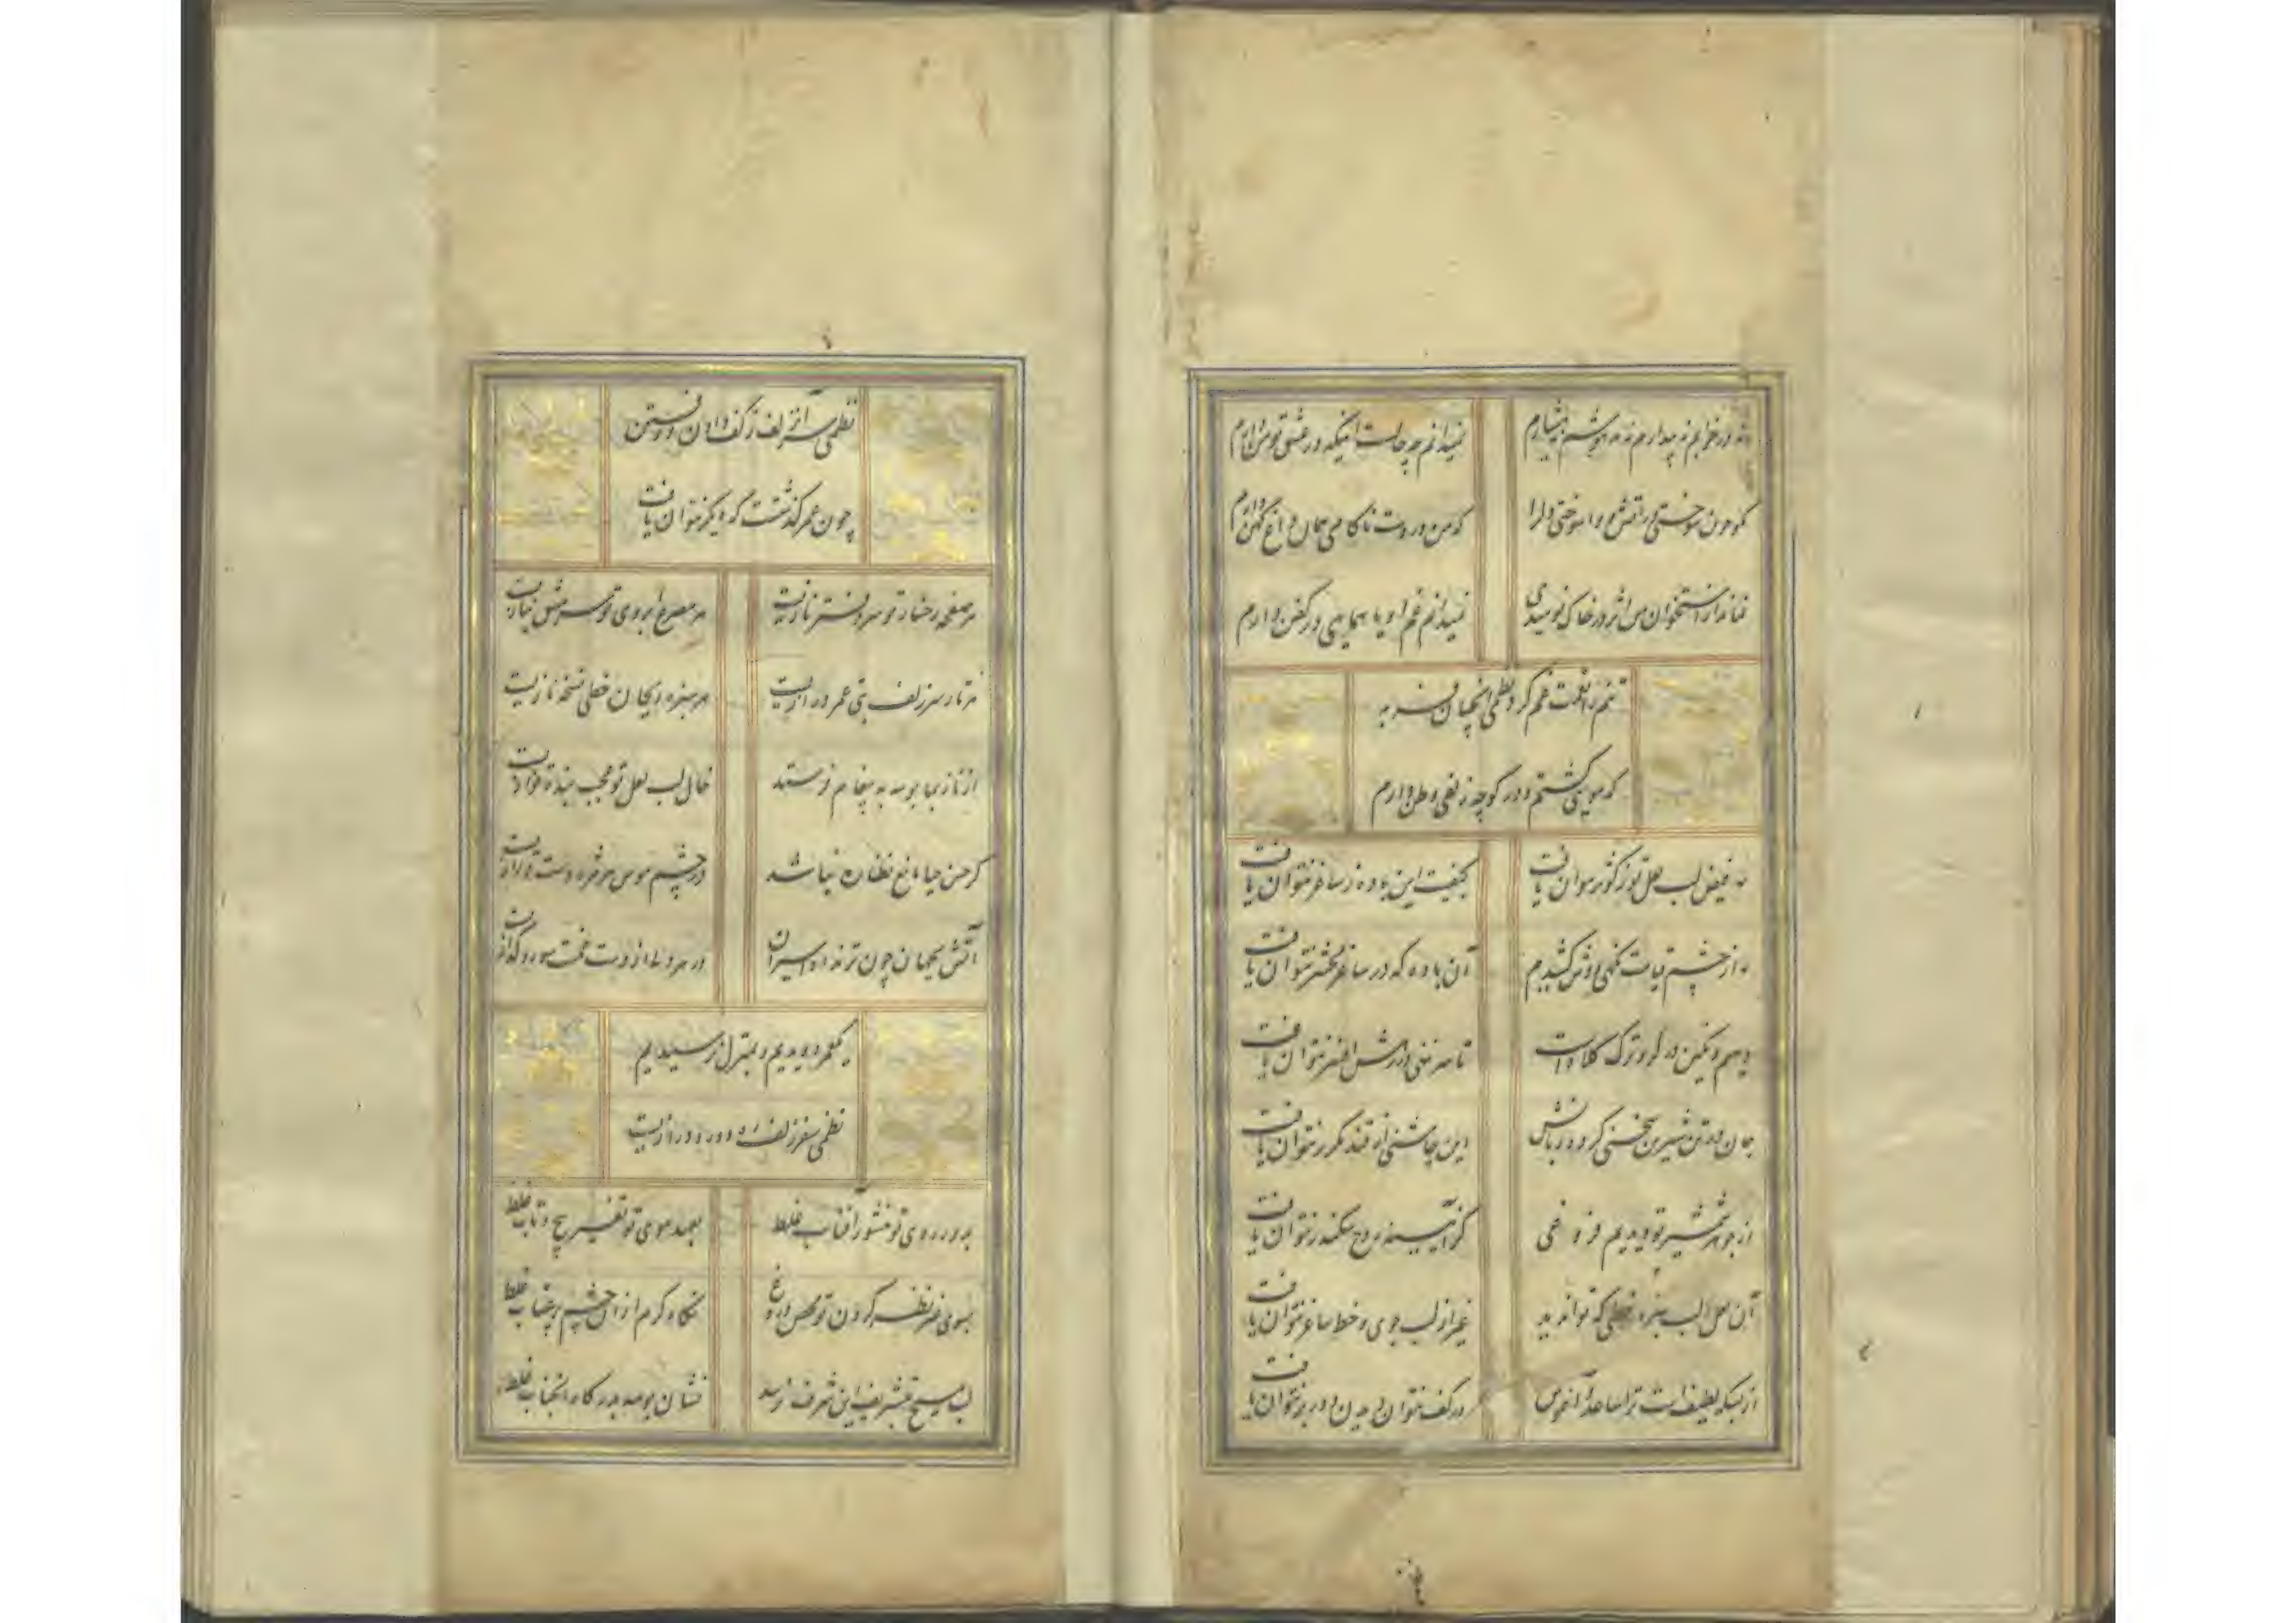 نه در خوابم نه بیدارم نه مدهوشم نه هشیارم
نمیدانم چه حالست اینکه در عشق تو من دارم
که چون سوختی در آتش و اسوختی دلرا
که من در دست ناکامی همان داغ کهن دارم
نماند از استخوان من اثر در خاک نومیدی
نمیدانم غم او یا همایی در کفن دارم
تنم را نعمت غم کرد نظمی آنچنان فربه
که مویی گشتم و در کوچه زلفی وطن دارم
نه فیض لب لعل تو ز کوثر بتوان یافت
کیفیت این باده ز ساغر نتوان یافت
ما از چشم قیامت نگهی دوش کشیدیم
آن باده که در ساغر محشر نتوان یافت
دیهیم و نگین در گرو ترک کلاه است
تا سر ننهی در رهش افسر نتوان یافت
جان در تن شیرین سخنی کرد زبانش
این چاشنی از قند مکرر نتوان یافت
از جوهر شمشیر تو دیدیم فروغی
کز آیینه روح سکندر نتوان یافت
آن لعل لب سبزه خطی که تواند دید
غیر از لب جوی و خط ساغر نتوان یافت
از بسکه لطیف است ترا ساعد و آغوش
در کف نتوان دیدن و در بر نتوان یافت
نظمی سر آن زلف ز کف دادن و رستن
چون عمر گذشت که دیگر نتوان یافت
هر صفحه رخسار تو سر دفتر نازیست
هر مصرع ابروی تو سر مشق نیازیست
هر تار سر زلف بتی عمر درازیست
هر سبزه ریحان خطی نسخه نازیست
از ناز بما بوسه به پیغام فرستد
خال لب لعل تو عجب بنده نوازیست
گر حسن حیا مانع نظاره نباشد
در چشم هوس هر مژه دست درازیست
آتش بجهان چون نزند آه اسیران
در هر دلی از دست غمت سوز و گدازیست
یکعمر دویدیم و بمنزل نرسیدیم
نظمی سفر زلف ره دور و درازیست
بدور روی تو منشور آفتاب غلط
بعهد موی تو تفسیر پیچ و تاب غلط
بسوی غیر نظر کردن تو محض دروغ
نگاه گرم از آن چشم پر عتاب غلط
لب مسیح بتشریف این شرف نرسد
نشان بوسه بدرگاه آنجناب غلط